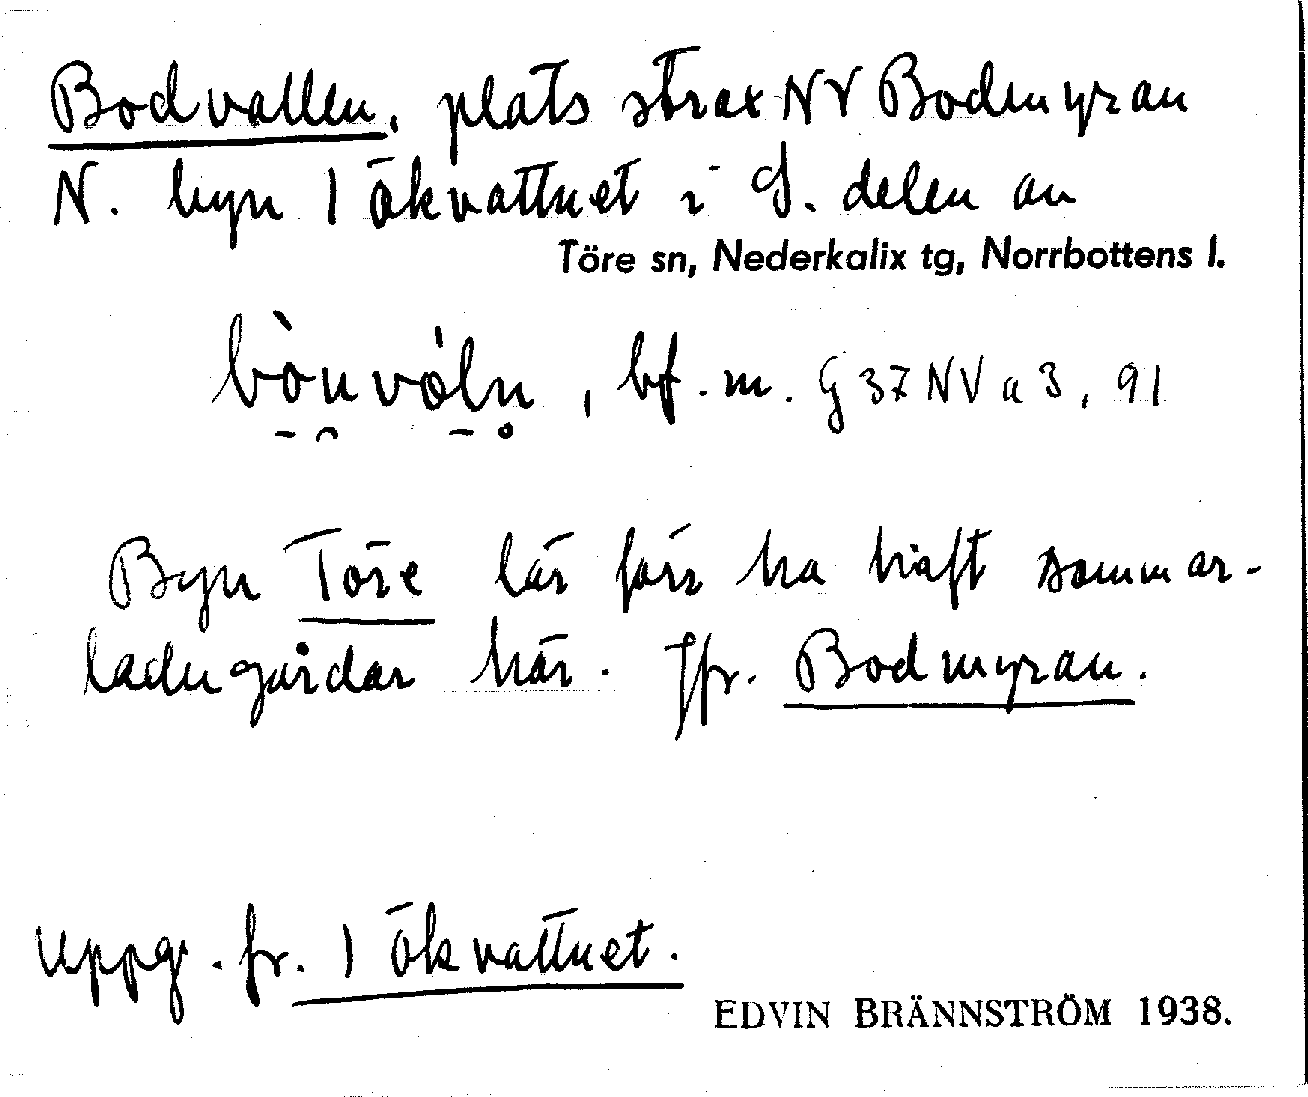 Bodvallen, plats strax NV Bodmyran
N. byn Lökvattnet i S. delen av
Töre sn, Nederkalix tg, Norrbottens l.
bònvòln, bf. m. G 37 NV a 3, 91
Byn Töre lär förr ha haft sommar-
ladugårdar här. Jfr. Bodmyran.
Uppg. fr. Lökvattnet.
EDVIN BRÄNNSTRÖM 1938.